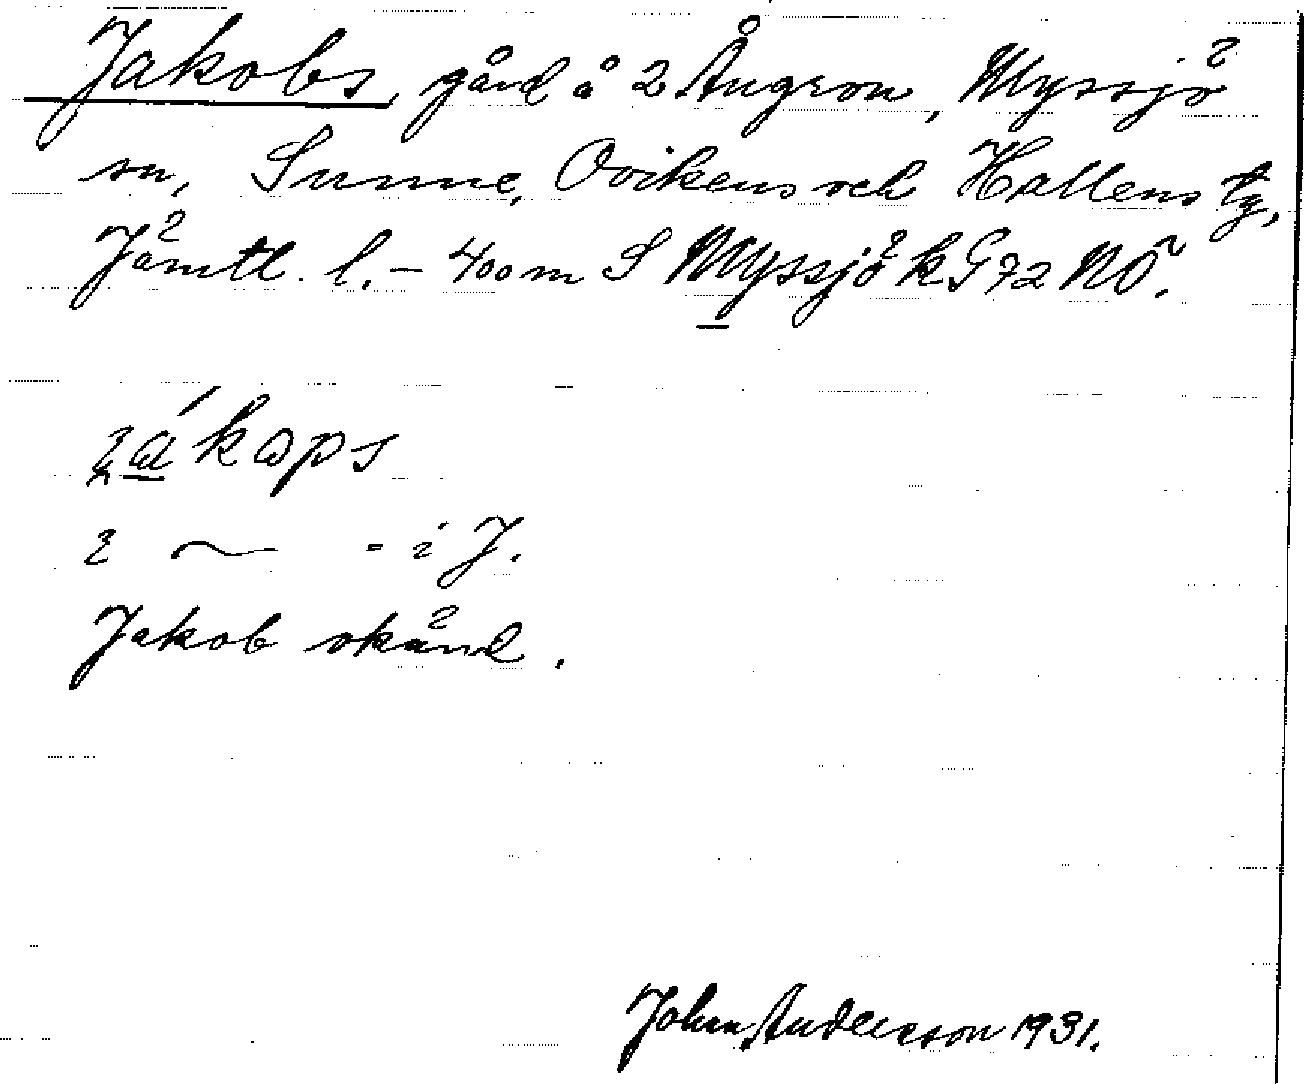 Jakobs, gård å 2 Ångron, Myssjö
sn, Sunne, Ovikens och Hallens tg,
Jämtl. l. – 400 m S Myssjö k G 72 NÖ.
kaps
i J.
Jakob okänd.
Johan Andersson 1931.